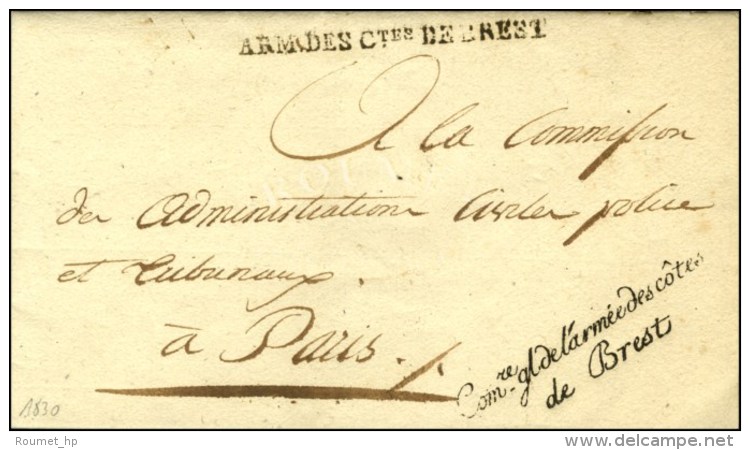 ARM.DES CTES DE BREST
A la Commission
des administrations Civiles police
et tribunaux.
à Paris.
Comre gl de l'armée des côtes
de Brest
B630
Roumet_hp
delcampe.net